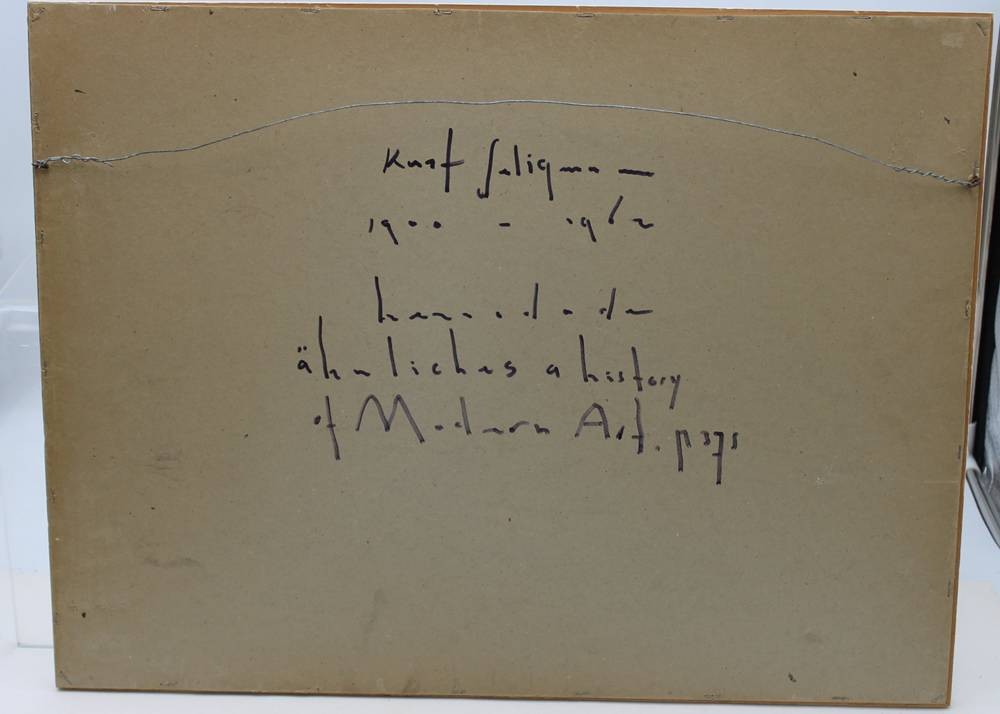 Kurt Seligmann
1900 - 1962
ähnliches a history
of Modern Art. p